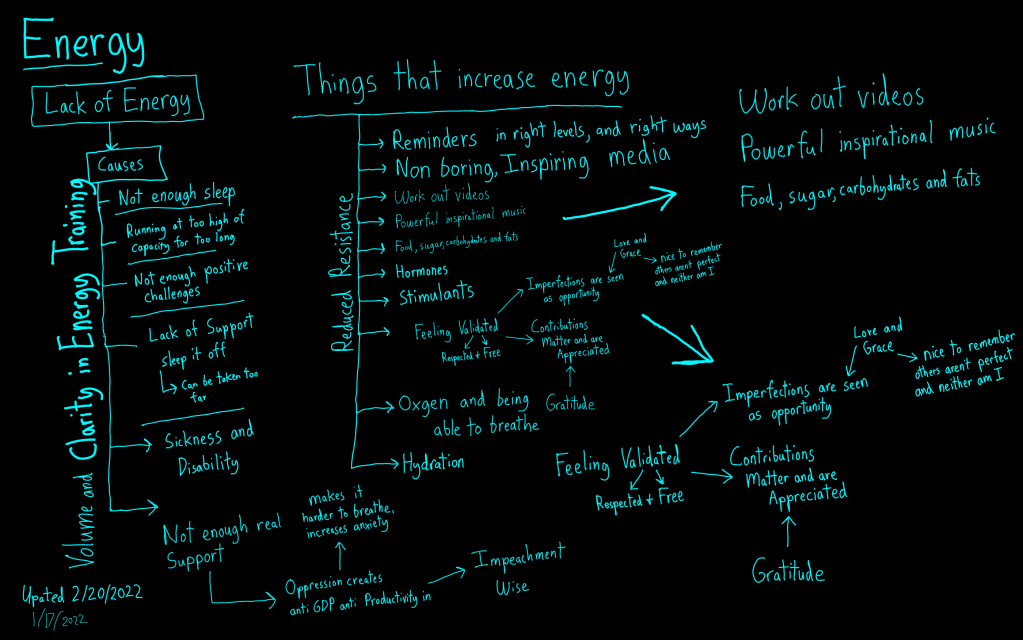 Energy
Lack of Energy
Causes
Not enough sleep
Running at too high of
capacity for too long
Not enough positive
challenges
Lack of Support
sleep it off
Can be taken too
far
Sickness and
Disability
Not enough real
Support
Volume and Clarity in Energy Training
Upated 2/20/2022
1/17/2022
Oppression creates
anti GDP anti Productivity in
makes it
harder to breathe,
increases anxiety
Impeachment
Wise
Things that increase energy
Reduced Resistance
Reminders in right levels, and right ways
Non boring, Inspiring media
Work out videos
Powerful inspirational music
Food, sugar, carbohydrates and fats
Hormones
Stimulants
Feeling Validated
Respected + Free
Imperfections are seen
as opportunity
Love and
Grace
nice to remember
others arent perfect
and neither am I
Contributions
Matter and are
Appreciated
Gratitude
Oxgen and being
able to breathe
Hydration
Work out videos
Powerful inspirational music
Food, sugar, carbohydrates and fats
Love and
Grace
nice to remember
others arent perfect
and neither am I
Imperfections are seen
as opportunity
Feeling Validated
Respected + Free
Contributions
Matter and are
Appreciated
Gratitude